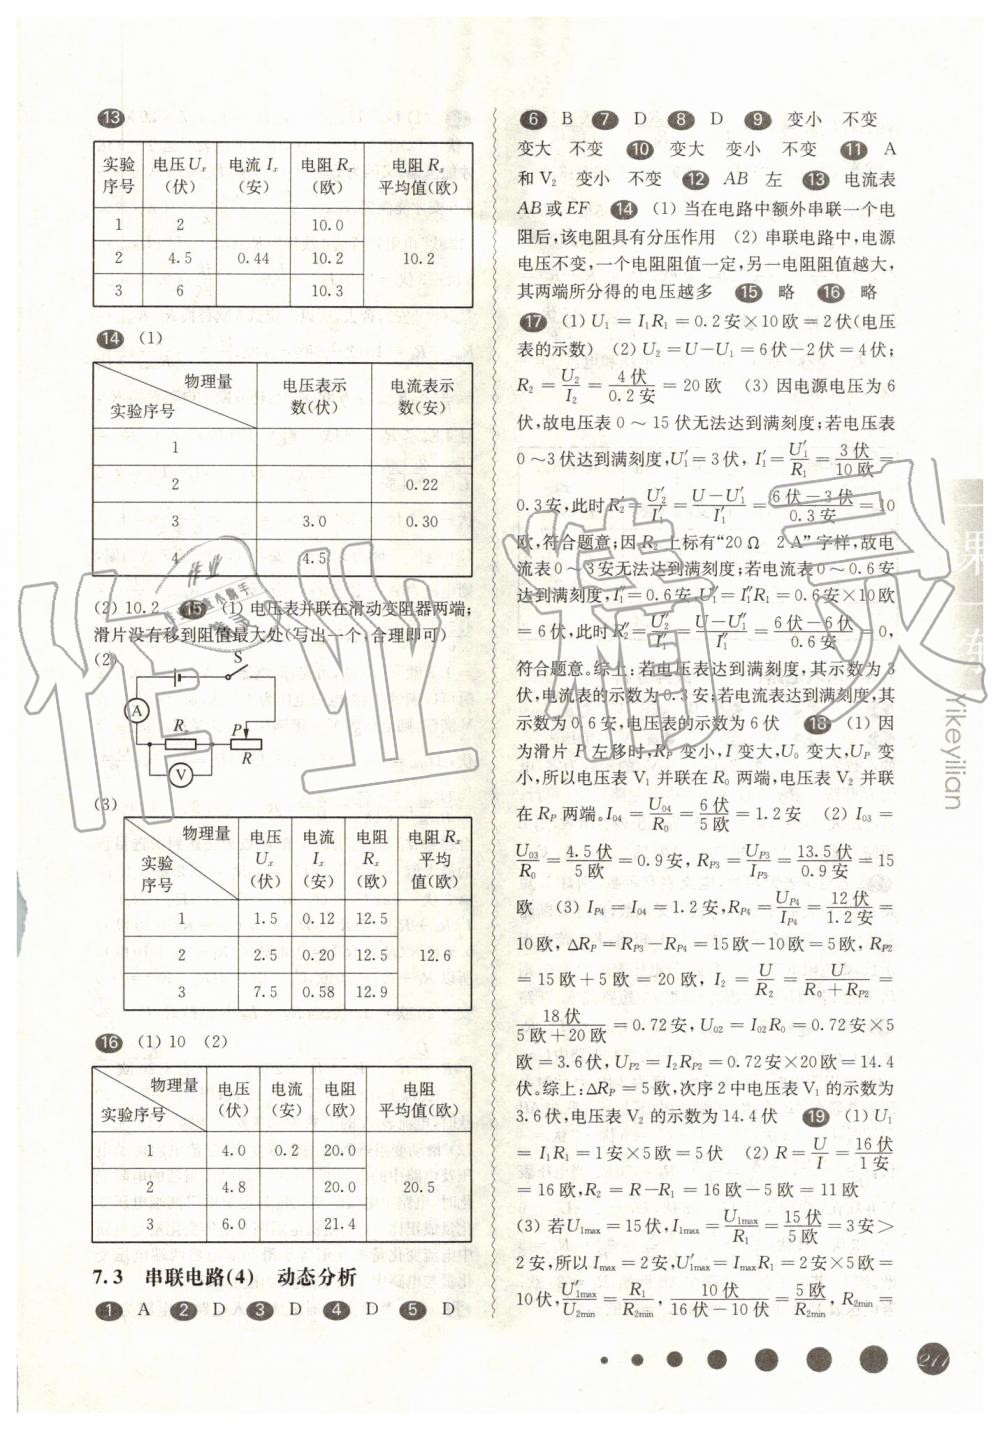 13
实验序号 电压Ux(伏) 电流Ix(安) 电阻Rx(欧) 电阻Rx平均值(欧)
1 2 10.0
2 4.5 0.44 10.2 10.2
3 6 10.3
14 (1)
物理量 实验序号 电压表示数(伏) 电流表示数(安)
1
2 0.22
3 3.0 0.30
4 4.5
(2) 10.2 15 (1) 电压表并联在滑动变阻器两端;
滑片没有移到阻值最大处(写出一个,合理即可)
(2)
S
A Rx P
R
V
(3)
物理量 实验序号 电压Ux(伏) 电流Ix(安) 电阻Rx(欧) 电阻Rx平均值(欧)
1 1.5 0.12 12.5
2 2.5 0.20 12.5 12.6
3 7.5 0.58 12.9
16 (1) 10 (2)
物理量 实验序号 电压(伏) 电流(安) 电阻(欧) 电阻平均值(欧)
1 4.0 0.2 20.0
2 4.8 20.0 20.5
3 6.0 21.4
7.3 串联电路(4) 动态分析
1 A 2 D 3 D 4 D 5 D
6 B 7 D 8 D 9 变小 不变
变大 不变 10 变大 变小 不变 11 A
和V2 变小 不变 12 AB 左 13 电流表
AB或EF 14 (1) 当在电路中额外串联一个电
阻后,该电阻具有分压作用 (2) 串联电路中,电源
电压不变,一个电阻阻值一定,另一电阻阻值越大,
其两端所分得的电压越多 15 略 16 略
17 (1) U1=I1R1=0.2安×10欧=2伏(电压
表的示数) (2) U2=U-U1=6伏-2伏=4伏;
R2=U2/I2=4伏/0.2安=20欧 (3) 因电源电压为6
伏,故电压表0~15伏无法达到满刻度;若电压表
0~3伏达到满刻度,U1′=3伏,I1′=U1′/R1=3伏/10欧=
0.3安,此时R2′=U2′/I1′=(U-U1′)/I1′=(6伏-3伏)/0.3安=10
欧,符合题意;因R2上标有“20Ω 2A”字样,故电
流表0~3安无法达到满刻度;若电流表0~0.6安
达到满刻度,I1″=0.6安,U1″=I1″R1=0.6安×10欧
=6伏,此时R2″=U2″/I1″=(U-U1″)/I1″=(6伏-6伏)/0.6安=0,
符合题意。综上:若电压表达到满刻度,其示数为3
伏,电流表的示数为0.3安;若电流表达到满刻度,其
示数为0.6安,电压表的示数为6伏 18 (1) 因
为滑片P左移时,RP变小,I变大,U0变大,UP变
小,所以电压表V1并联在R0两端,电压表V2并联
在RP两端。I04=U04/R0=6伏/5欧=1.2安 (2) I03=
U03/R0=4.5伏/5欧=0.9安,RP3=UP3/IP3=13.5伏/0.9安=15
欧 (3) IP4=I04=1.2安,RP4=UP4/IP4=12伏/1.2安=
10欧,ΔRP=RP3-RP4=15欧-10欧=5欧,RP2
=15欧+5欧=20欧,I2=U/R2=U/(R0+RP2)=
18伏/(5欧+20欧)=0.72安,U02=I02R0=0.72安×5
欧=3.6伏,UP2=I2RP2=0.72安×20欧=14.4
伏。综上:ΔRP=5欧,次序2中电压表V1的示数为
3.6伏,电压表V2的示数为14.4伏 19 (1) U1
=I1R1=1安×5欧=5伏 (2) R=U/I=16伏/1安
=16欧,R2=R-R1=16欧-5欧=11欧
(3) 若U1max=15伏,I1max=U1max/R1=15伏/5欧=3安>
2安,所以Imax=2安,U1max′=ImaxR1=2安×5欧=
10伏,U1max′/U2min=R1/R2min,10伏/(16伏-10伏)=5欧/R2min,R2min=
一课一练
Yikeyilian
211
作业精灵